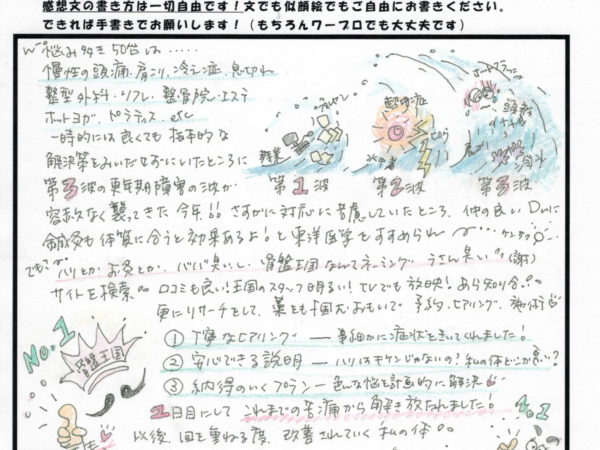 感想文の書き方は一切自由です！文でも似顔絵でもご自由にお書きください。
できれば手書きでお願いします！（もちろんワープロでも大丈夫です）
悩み多き50台は……
慢性の頭痛、肩こり、冷え症、息切れ
整型外科、リフレ、整骨院、エステ
ホットヨガ、ピラティス、etc
一時的には良くても根本的な
解決策をみいだせずにいたところに
第3波の更年期障害の波が
第1波
第2波
第3波
容赦なく襲ってきた今年!! さすがに対応に苦慮していたところ、仲の良いDrに
鍼灸も体質に合うと効果あるよ！と東洋医学をすすめられ
でもさ ハリとかお灸とか、ババ臭いし、骨盤王国なんてネーミングうさん臭い(謝)
サイトを検索 口コミも良い！王国のスタッフ明るい！TVでも放映！あら知り合い
更にリサーチをして、予約、ヒアリング、施術
No.1
骨盤王国
① 丁寧なヒアリング ― 事細かに症状をきいてくれました！
② 安心できる説明 ― ハリはキケンじゃないの？私の体どこが悪い？
③ 納得のいくプラン ― 色んな悩を計画的に解決
1日目にして これまでの苦痛から解き放たれました！
以後、回を重ねる度、改善されていく私の体